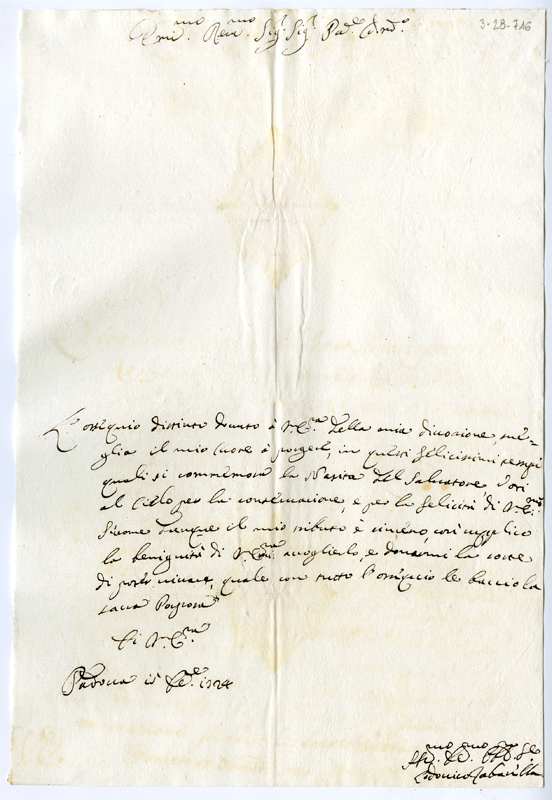 Em.mo Rev.mo Sig.r Sig.r Pad.e Col.mo
3-28-716
L'ossequio distinto dovuto à V. Em.a della mia divozione, sue-
glia il mio Cuore à porgere, in questi felicissimi tempi
quali si commemora la Nascita del Salvatore, Voti
al Cielo per la conservazione, e per la felicità di V. Em.a
Sicome dunque il mio tributo è sincero, così supplico
la benignità di V. Em.a accoglierlo, e donarmi la sorte
di poter vivere, quale con tutto l'ossequio le baccio la
sacra Porpora
Di V. Em.a
Padova 15 Xb.e 1724
Lodovico